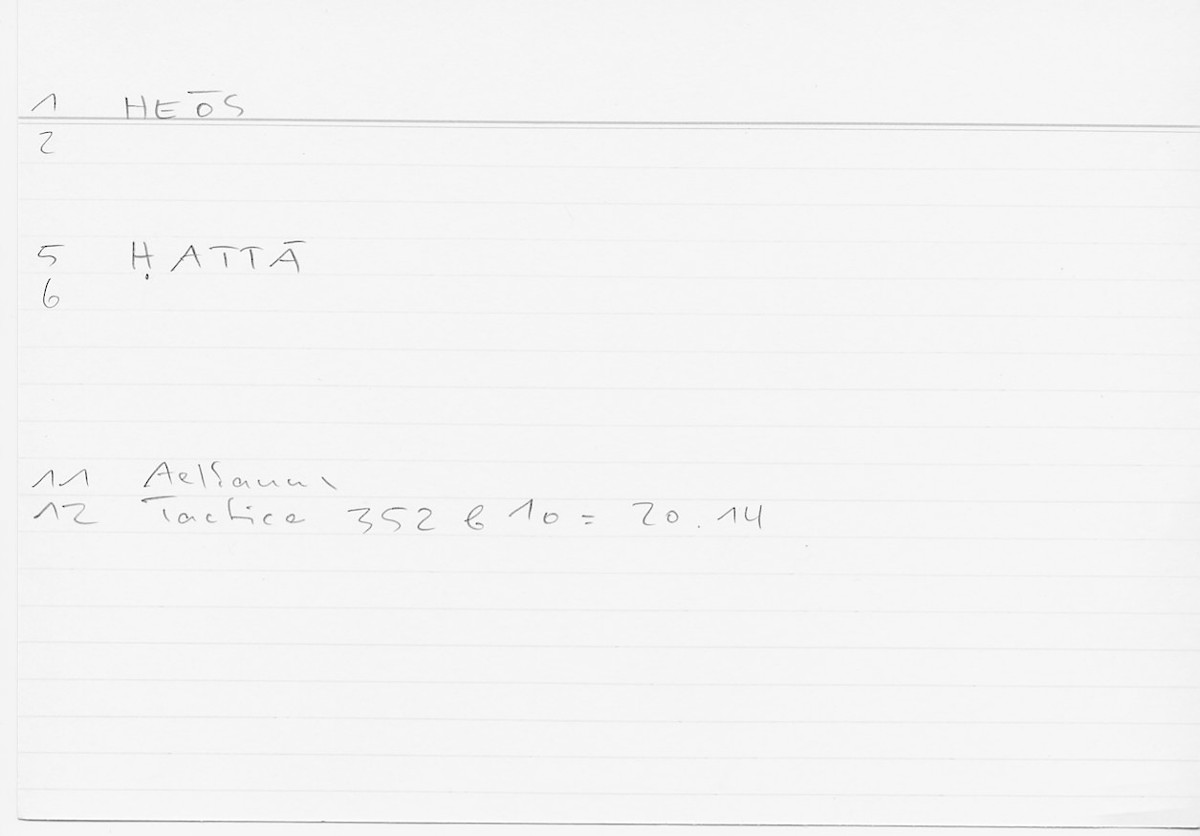 1 HEŌS
2
5 ḤATTĀ
6
11 Aelianus
12 Tactica 352 b 10 = 20.14